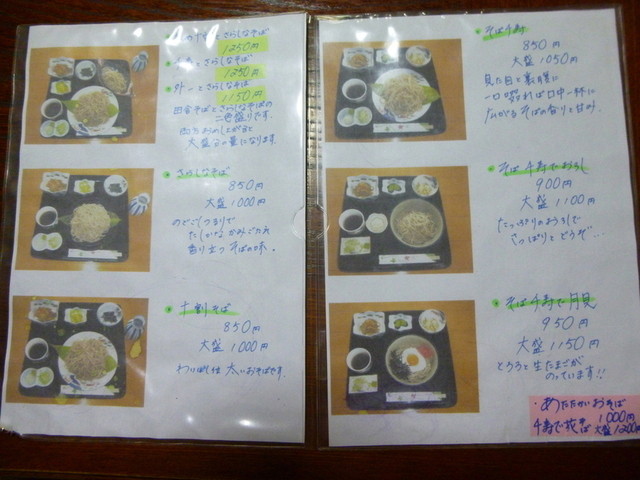 とさらしなそば
1250円
とさらしなそば
1250円
外一とさらしなそば
1150円
田舎そばとさらしなそばの
二色盛りです。
大盛分の量になります。
さらしなそば
850円
大盛 1000円
のどごしつるりで
たしかなかみごたえ
香り立つそばの味。
十割そば
850円
大盛 1000円
太いおそばです。
そば千寿
850円
大盛 1050円
見た目も
一口啜れば口中一杯に
広がるそばの香りと甘み。
そば千寿でおろし
900円
大盛 1100円
たっぷりのおろしで
さっぱりとどうぞ...
そば千寿で月見
950円
大盛 1150円
とろろと生たまごが
のっています!!
・あたたかいおそば
千寿で 1000円
大盛 1200円